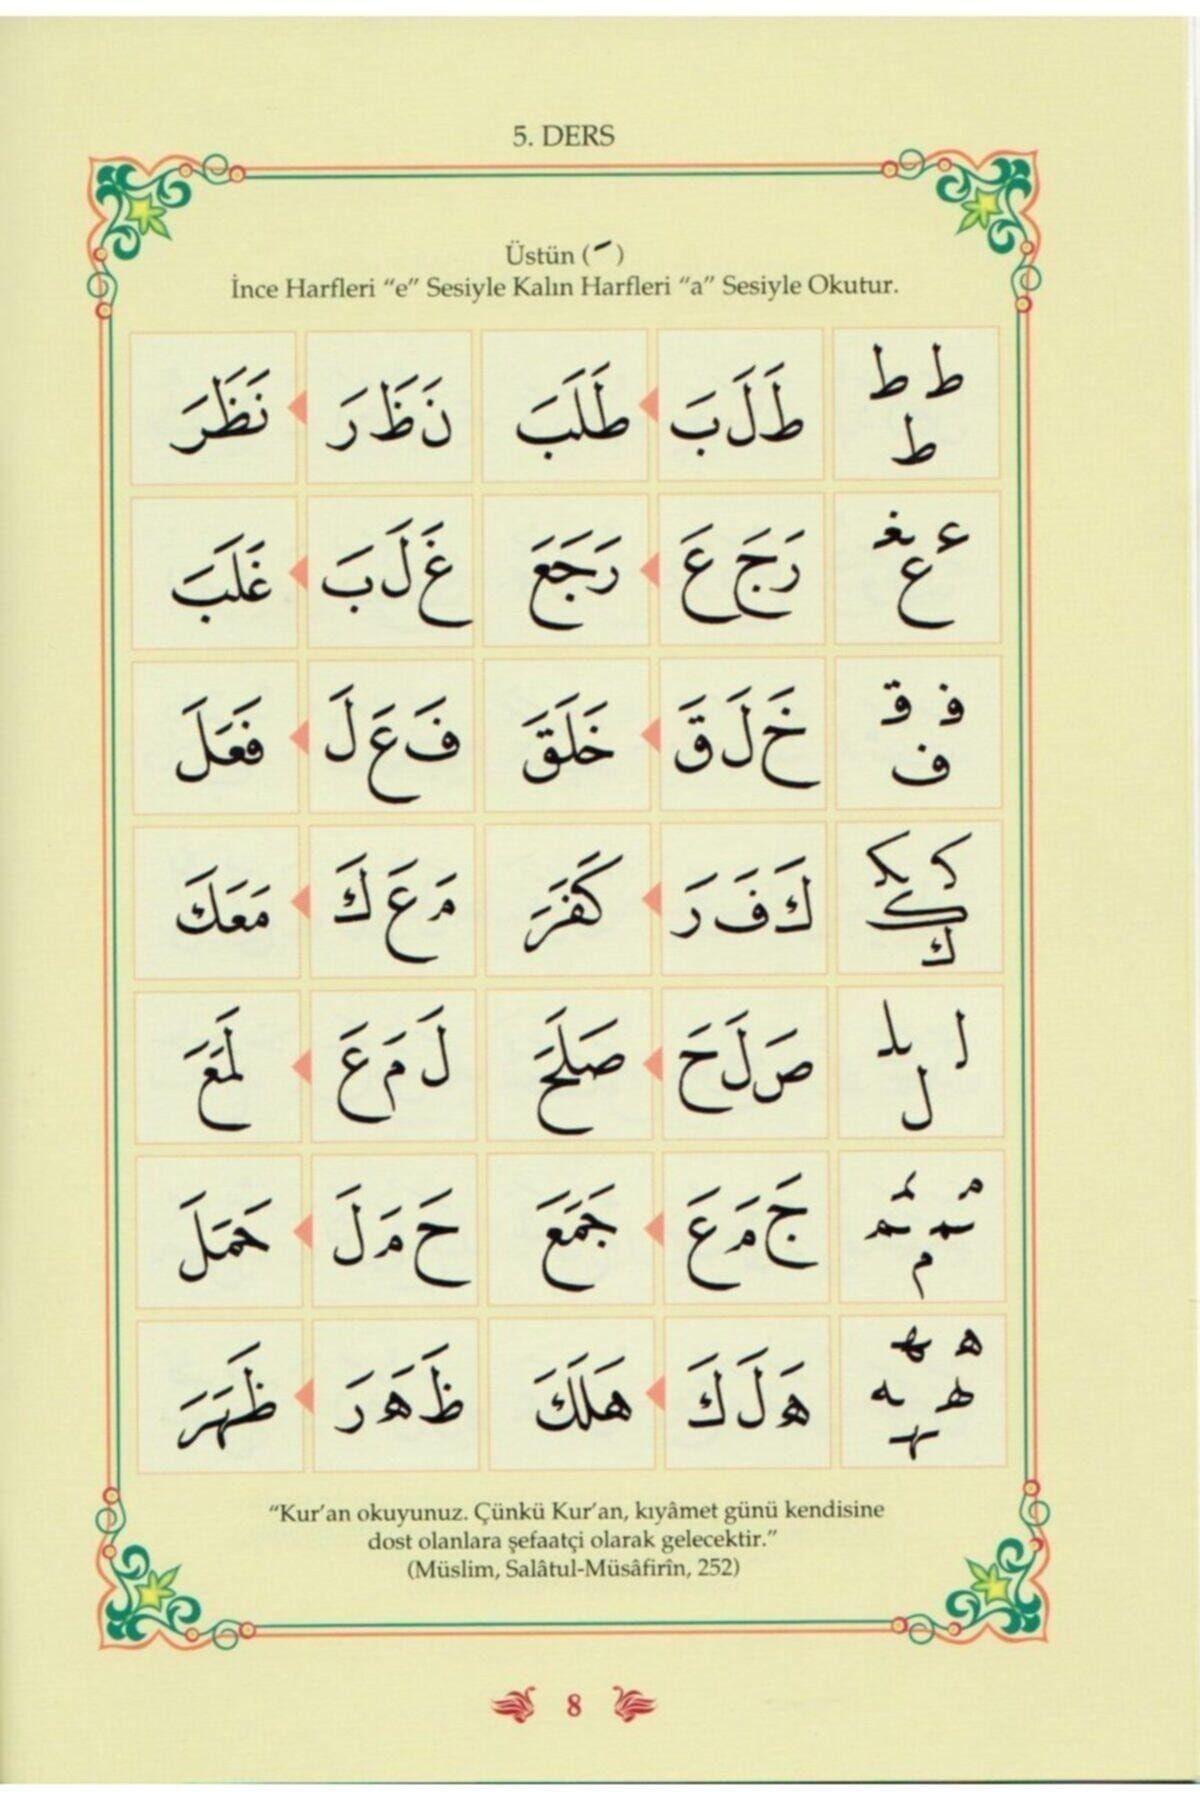 5. DERS
Üstün (َ)
İnce Harfleri “e” Sesiyle Kalın Harfleri “a” Sesiyle Okutur.
ط ط طَ لَ بَ طَلَبَ نَ ظَ رَ نَظَرَ
ط
ع غ رَ جَ عَ رَجَعَ غَ لَ بَ غَلَبَ
ع
ف ق خَ لَ قَ خَلَقَ فَ عَ لَ فَعَلَ
ف
ك ك كَ فَ رَ كَفَرَ مَ عَ كَ مَعَكَ
ك
ك
ل ل صَ لَ حَ صَلَحَ لَ مَ عَ لَمَعَ
ل
م م جَ مَ عَ جَمَعَ حَ مَ لَ حَمَلَ
م م
م
ه ه هَ لَ كَ هَلَكَ ظَ هَ رَ ظَهَرَ
ه ه
ه
“Kur’an okuyunuz. Çünkü Kur’an, kıyâmet günü kendisine
dost olanlara şefaatçi olarak gelecektir.”
(Müslim, Salâtul-Müsâfirîn, 252)
8